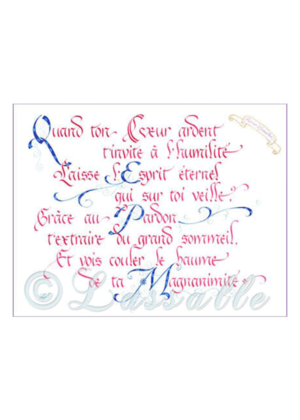 Quand ton Cœur ardent
t'invite à l'humilité
Laisse l'Esprit éternel
qui sur toi veille?
Grâce au Pardon
t'extraire du grand sommeil.
Et vois couler le baume
de ta Magnanimité.
© Lassalle